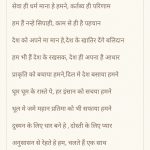 सेवा ही धर्म माना है हमने, कर्तव्य ही परिणाम
हम हैं नन्हे सिपाही, काम से ही है पहचान
देश को अपने मां मान है,देश के खातिर देंगे बलिदान
हम भी हैं देश के रखसक, देश ही अपना है आधार
प्राकृति को बचाया हमने,दिल में देश बसाया हमने
घूम घूम के रास्ते पे, हर इंसान को बचाया हमने
धूल मे जमे महान प्रतिमा को भी सफाया हमने
दुश्मन के लिए धार बने हैं , दोस्तों के लिए प्यार
अनुशासन से रेहते है हम, चलते हैं एक साथ